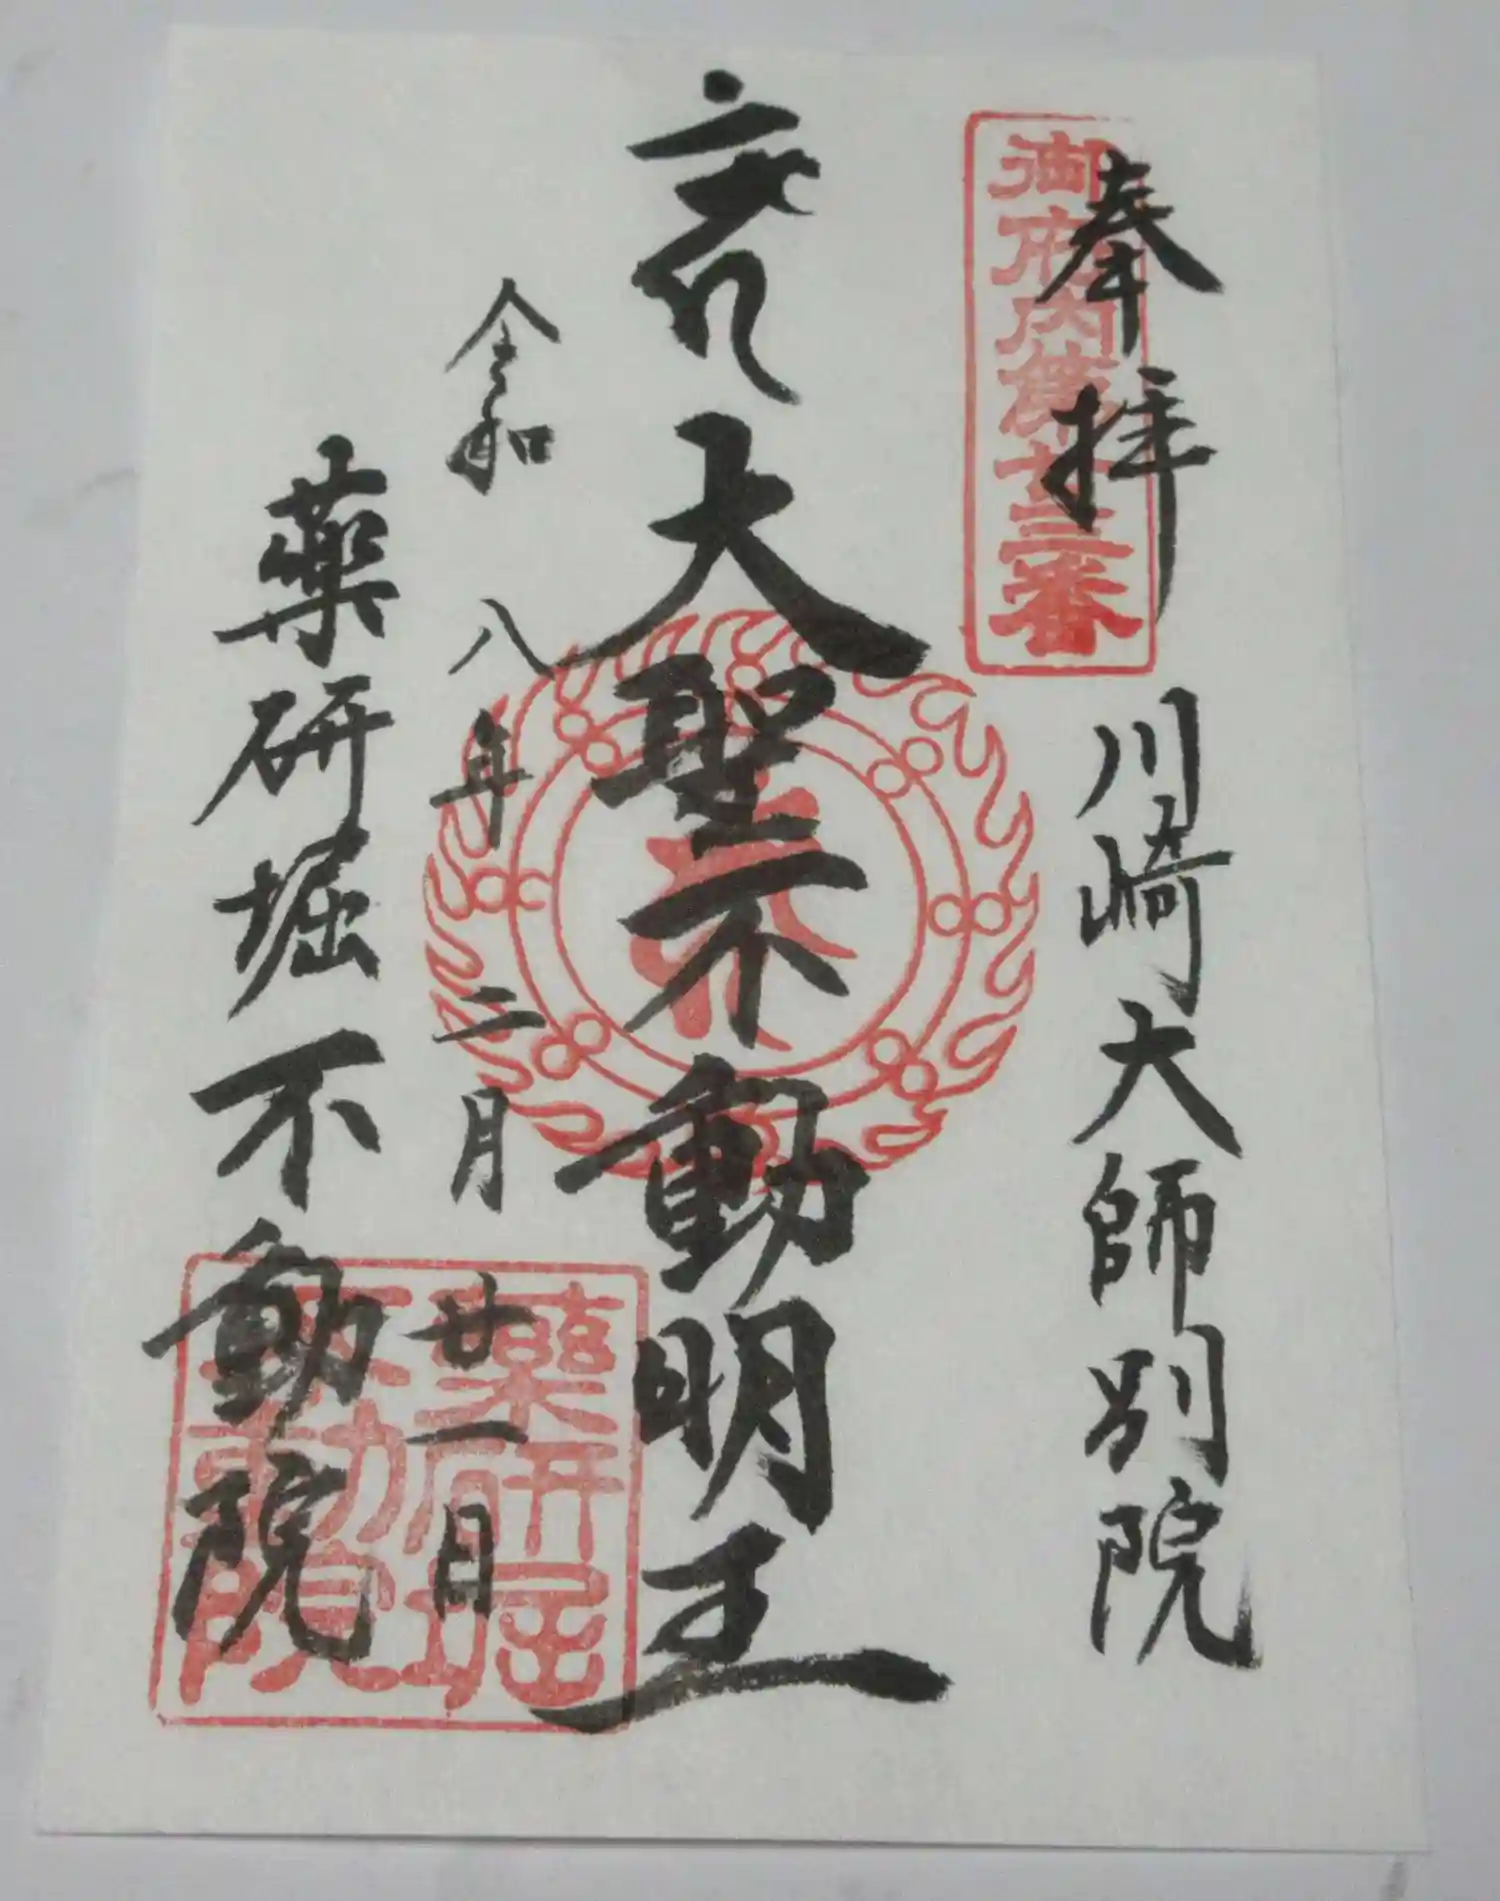 奉拝
御府内第廿三番
川崎大師別院
大聖不動明王
令和八年二月廿一日
薬研堀不動院
薬研堀
不動院